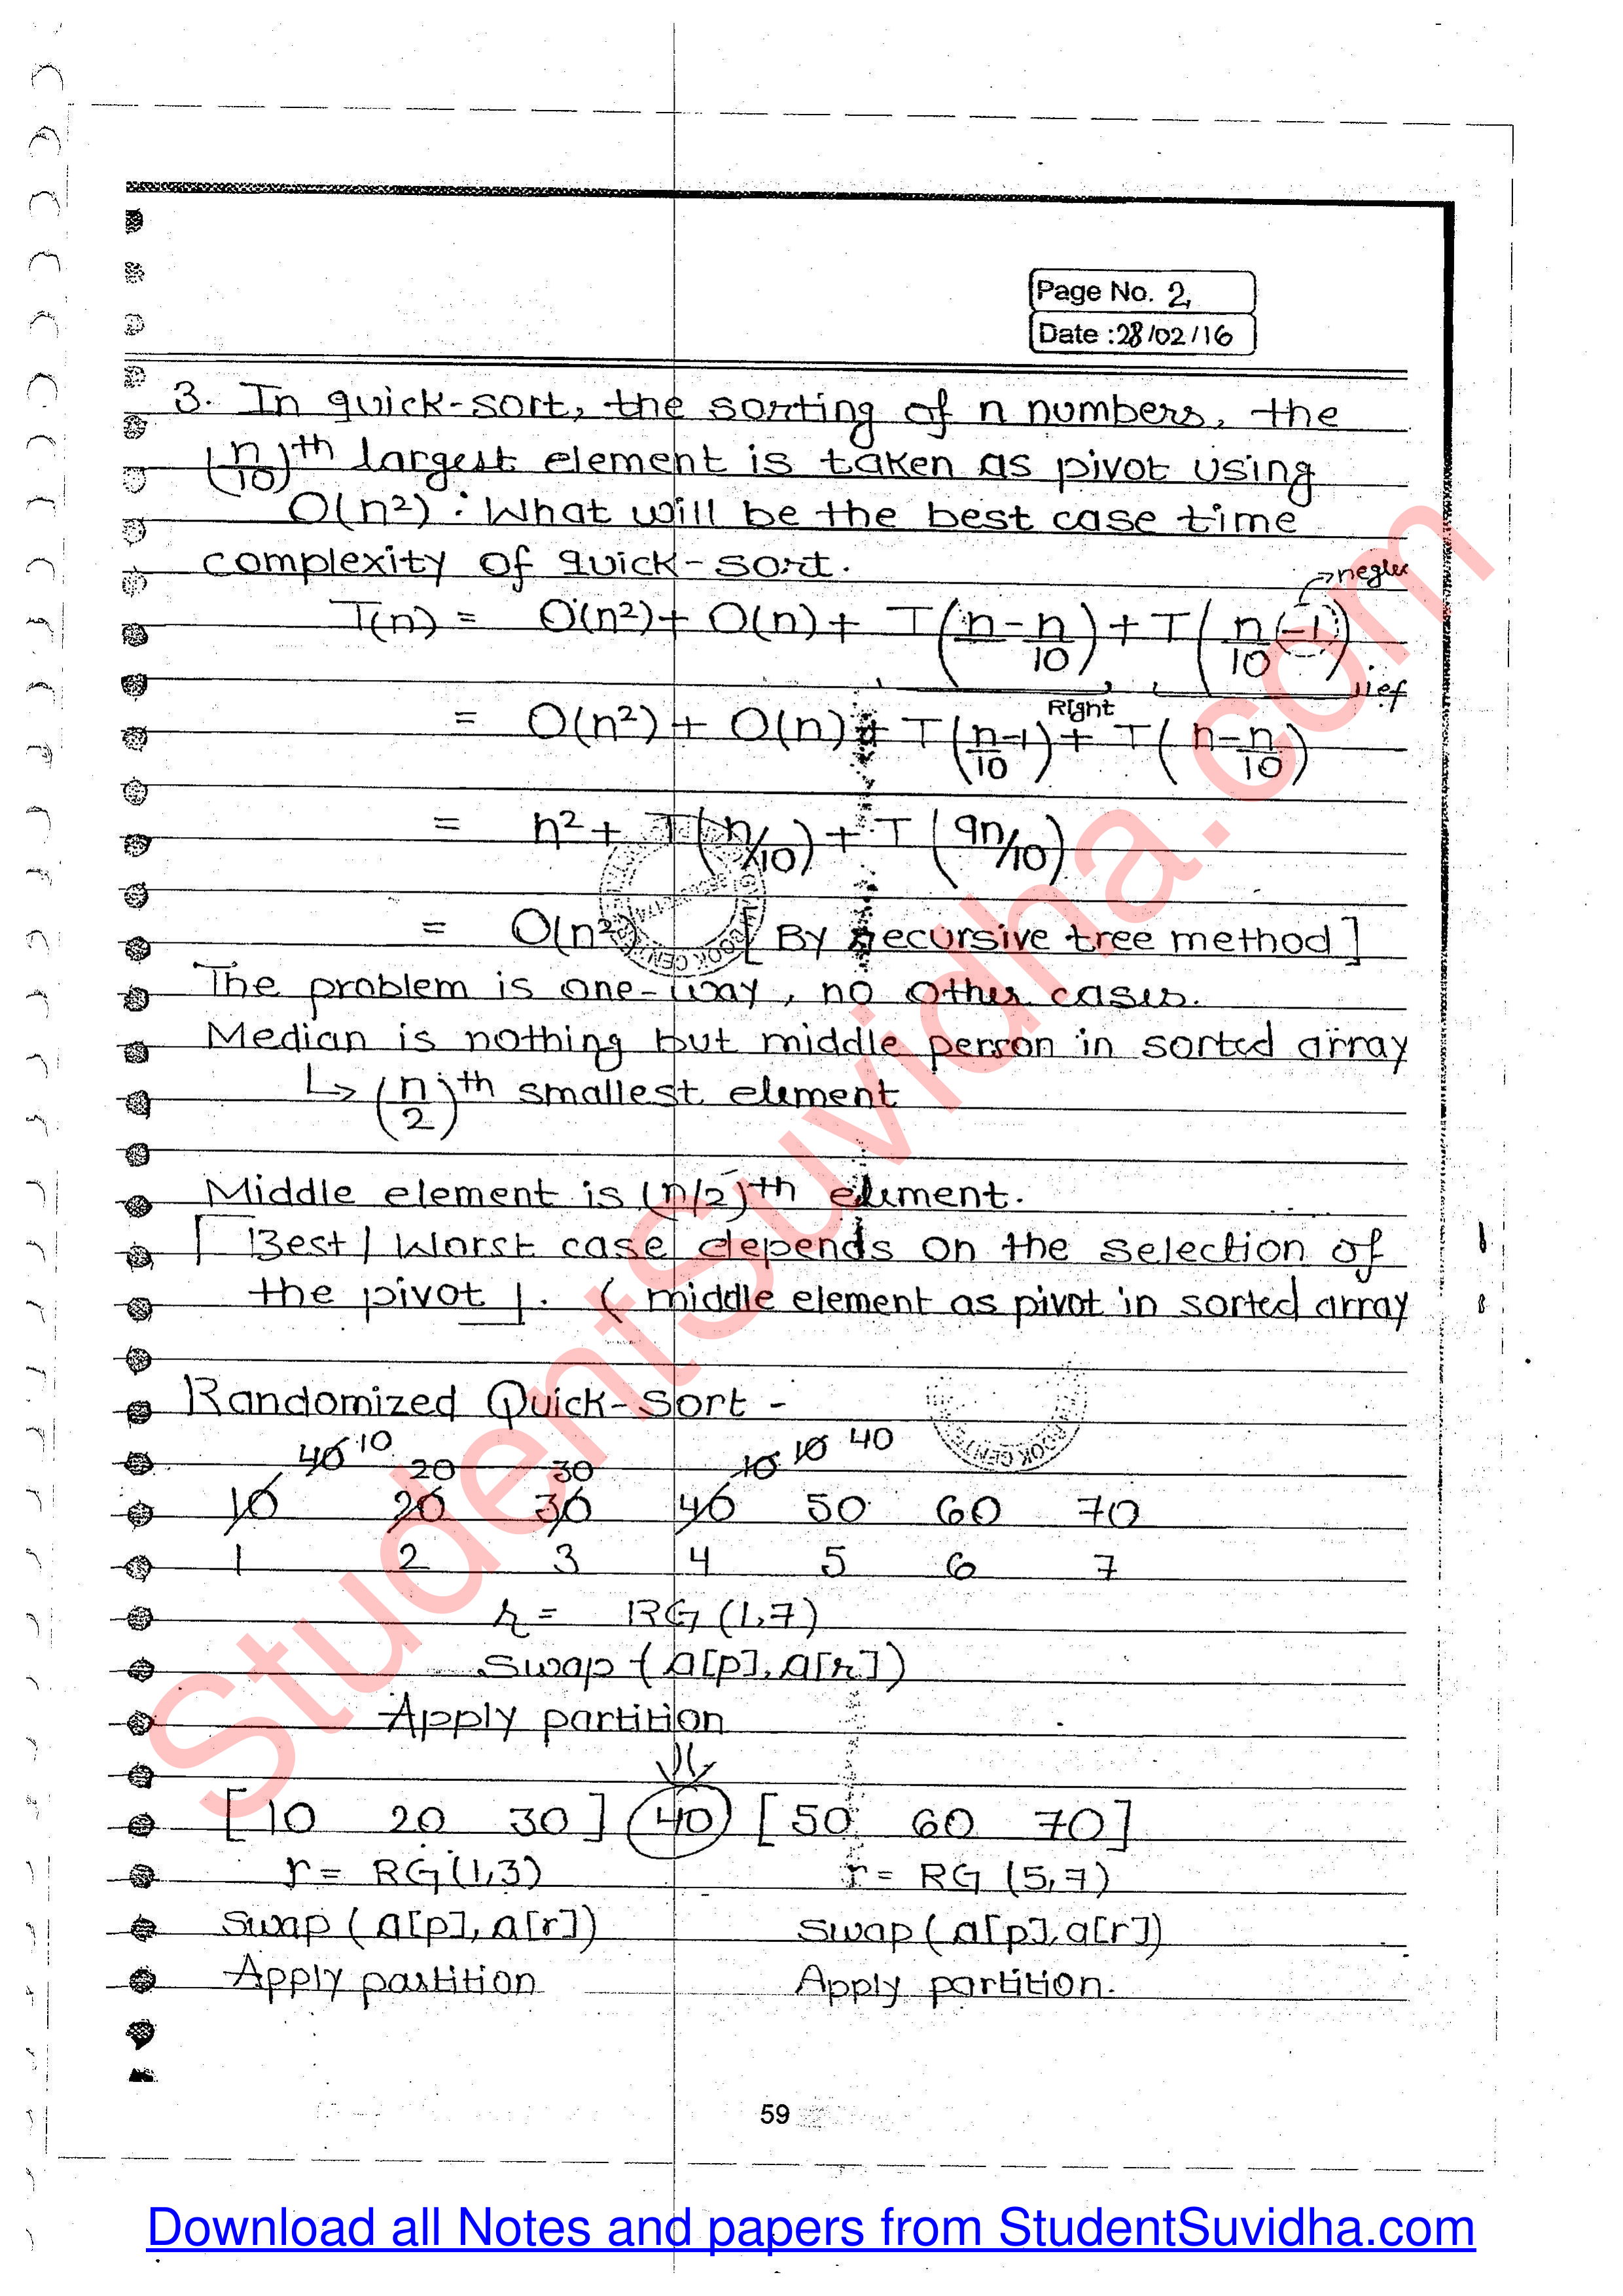 Page No. 2,
Date : 28/02/16
3. In quick-sort, the sorting of n numbers, the
(n/10)th largest element is taken as pivot using
O(n²) : What will be the best case time
complexity of quick-sort.
→ neglec
T(n) = O(n²) + O(n) + T(n - n/10) + T(n/10 (-1))
Right lef
= O(n²) + O(n) + T(n/10 -1) + T(n - n/10)
= n² + T(n/10) + T(9n/10)
= O(n²) [By recursive tree method]
The problem is one-way, no other cases.
Median is nothing but middle person in sorted array
↳ (n/2)th smallest element
Middle element is (n/2)th element.
[Best/Worst case depends on the selection of
the pivot]. (middle element as pivot in sorted array
Randomized Quick-Sort -
40 10 20 30 10 10 40
10 20 30 40 50 60 70
1 2 3 4 5 6 7
r = RG(1,7)
Swap (a[p], a[r])
Apply partition
[10 20 30] 40 [50 60 70]
r = RG(1,3) r = RG (5,7)
Swap (a[p], a[r]) Swap (a[p], a[r])
Apply partition Apply partition.
59
StudentSuvidha.com
Download all Notes and papers from StudentSuvidha.com